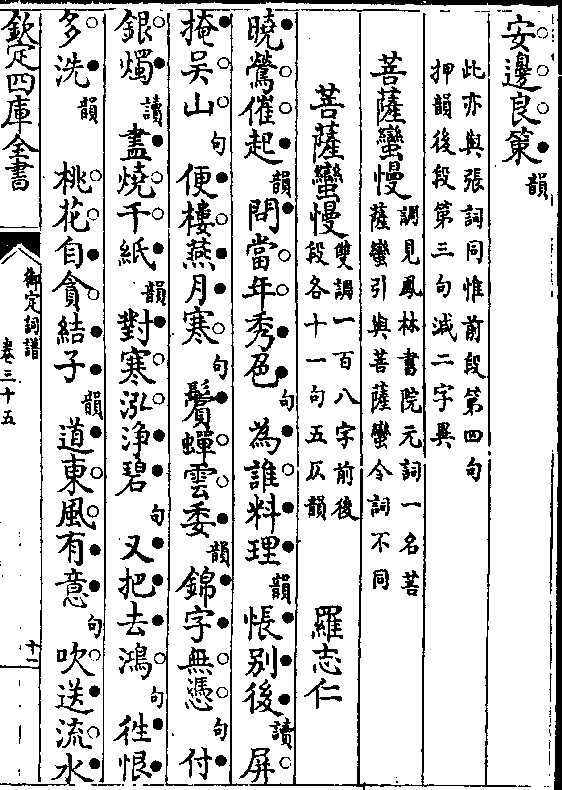 安邊良策韻
此亦與張詞同惟前段第四句
押韻後段第三句減二字異
菩薩蠻慢調見鳳林書院元詞一名菩
薩蠻引與菩薩蠻令詞不同
菩薩蠻慢雙調一百八字前後
段各十一句五仄韻 羅志仁
曉鶯催起韻問當年秀色句為誰料理韻悵別後讀屏
掩吳山句便樓燕月寒句鬢蟬雲委韻錦字無憑句付
銀燭讀盡燒千紙韻對寒泓浄碧句又把去鴻句徃恨
多洗韻桃花自貪結子韻道東風有意句吹送流水
欽定四庫全書
御定詞譜
卷三十五
十一